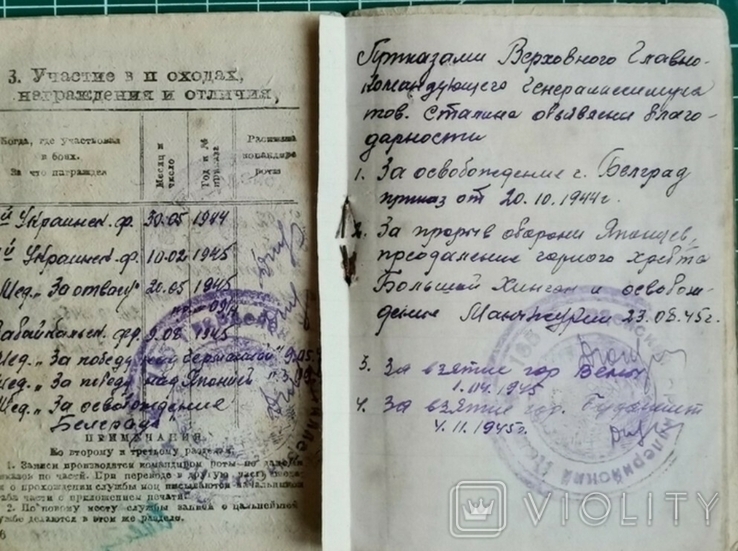 3. Участие в п оходах,
награждения и отличия,
Когда, где участвовал
в боях.
За что награжден
Месяц и
число
Год и №
приказа
Расписка
командира
роты
й Украинск. ф. 30.05 1944
й Украинск. ф. 10.02 1945
Мед. „За отвагу" 20.05 1945
Забайкальск. фр. 9.08 1945
Мед. „За победу над Германией" 9.05.4
Мед. „За победу над Японией" 3.09
Мед. „За освобождение
Белграда"
ПРИМЕЧАНИЯ
Ко второму и третьему разделам.
1. Записи производятся командиром роты по
приказов по части. При переводе в другую часть
о прохождении службы
части с приложением печати.
2. По новому месту службы запись о дальнейшей
службе делаются в этом же разделе.
6
Приказами Верховного Главно-
командующего Генералиссимуса
тов. Сталина объявлены благо-
дарности
1. За освобождение г. Белград
приказ от 20.10.1944г.
2. За прорыв обороны Японцев,
преодаление горного хребта
Большой Хинган и освобож-
дение Манжурии 23.08.45г.
3. За взятие гор. Вены
1.04.1945
4. За взятие гор. Будапешт
4.11.1945г.
VIOLITY